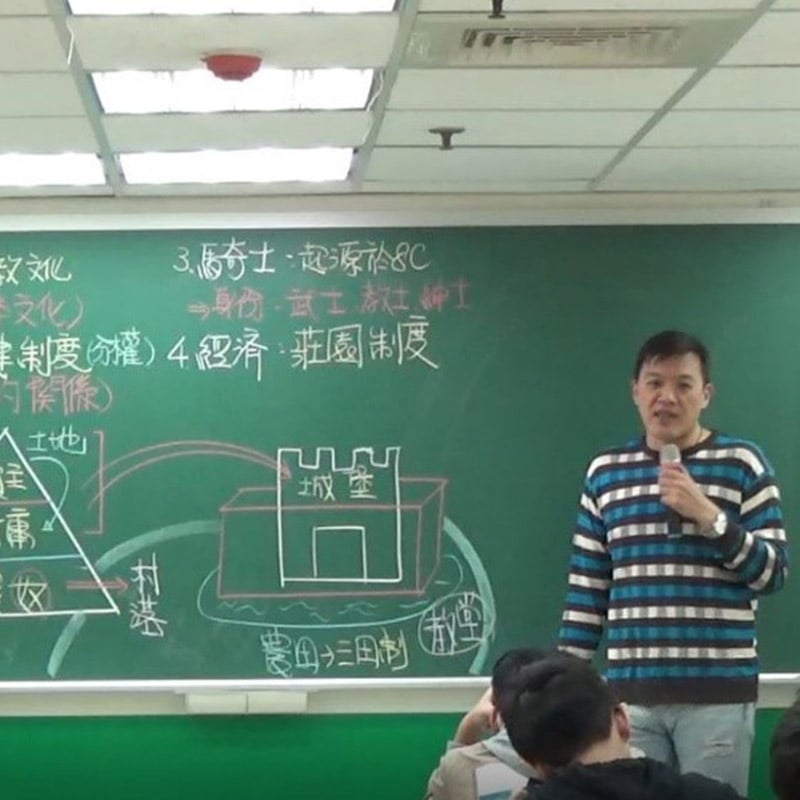 教文化
3.馬奇士:起源於8C
文化)
⇒身份:武士.教士.紳士
建制度(分權)
4.經濟:莊園制度
的關係)
土地
主
城堡
庸
奴
村落
教堂
農田→三田制